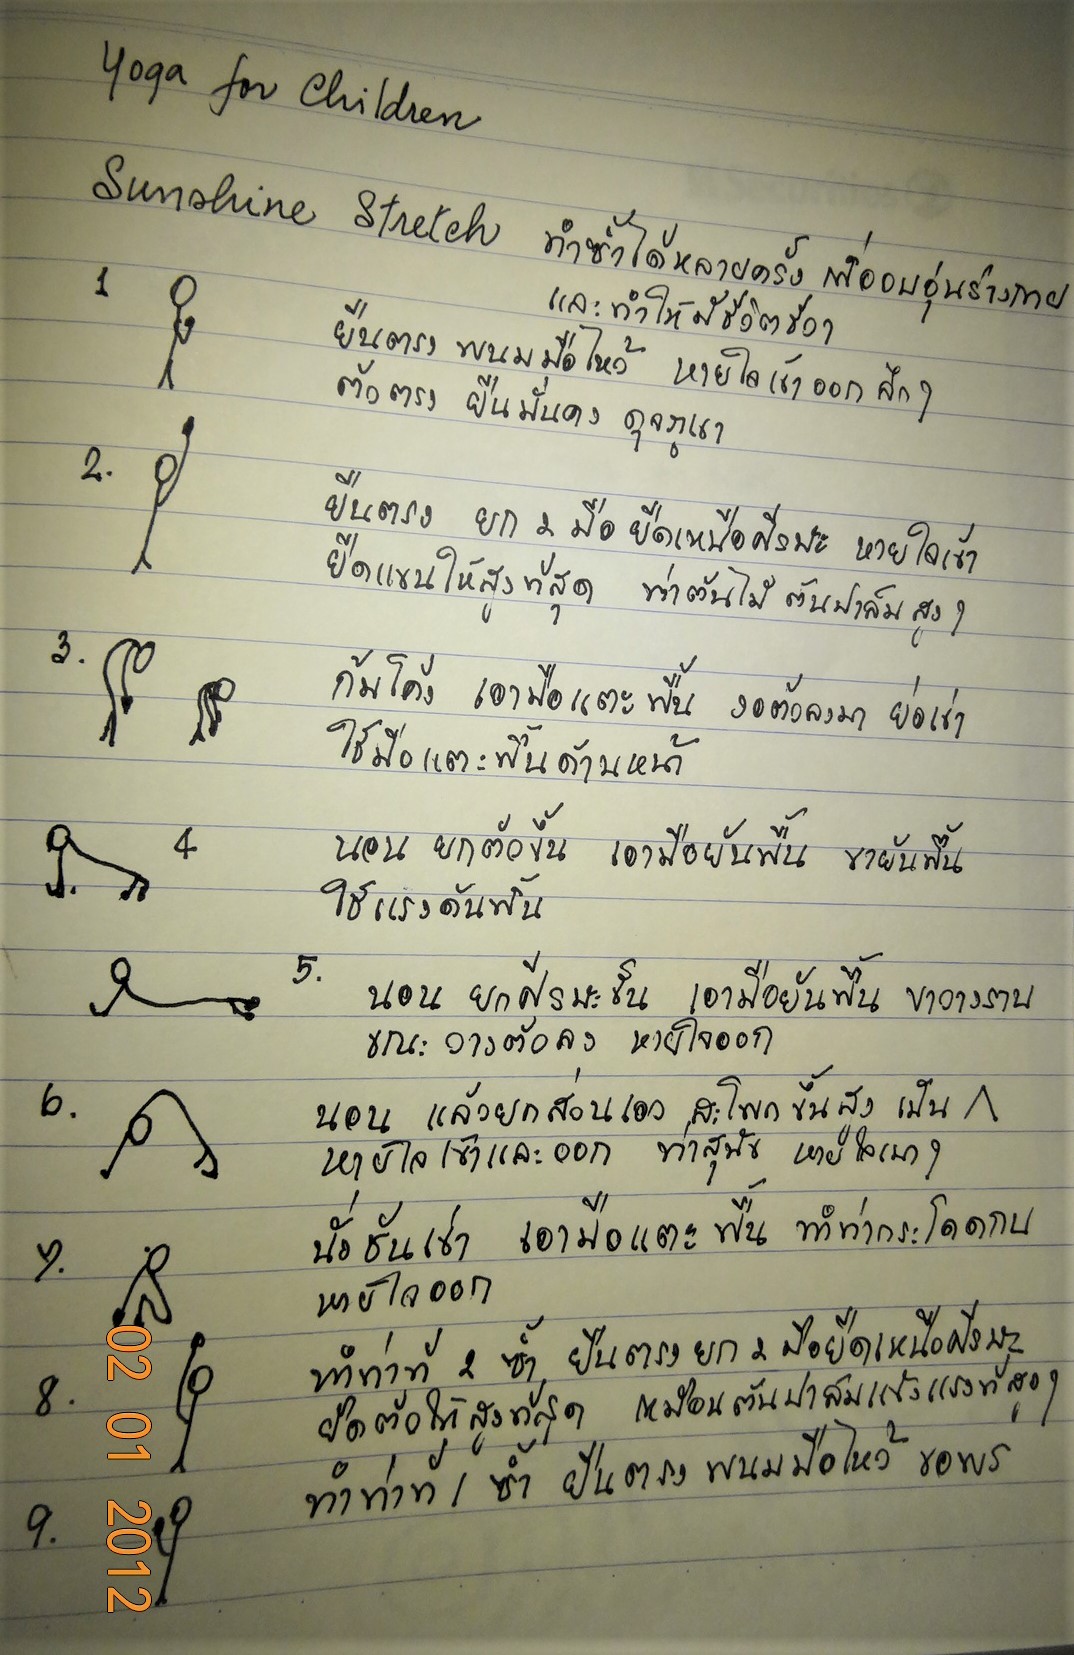 Yoga for Children
Sunshine Stretch ทำซ้ำได้หลายครั้ง เพื่ออบอุ่นร่างกาย
และทำให้มีชีวิตชีวา
1
ยืนตรง พนมมือไหว้ หายใจเข้าออก ลึกๆ
ตัวตรง ยืนมั่นคง ดุจภูเขา
2.
ยืนตรง ยก 2 มือ ยืดเหนือศีรษะ หายใจเข้า
ยืดแขนให้สูงที่สุด ท่าต้นไม้ ต้นปาล์มสูงๆ
3.
ก้มโค้ง เอามือแตะพื้น งอตัวลงมา ย่อเข่า
ใช้มือแตะพื้นด้านหน้า
4
นอน ยกตัวขึ้น เอามือยันพื้น ขายันพื้น
ใช้แรงดันพื้น
5.
นอน ยกศีรษะขึ้น เอามือยันพื้น ขาวางราบ
ขณะวางตัวลง หายใจออก
6.
นอน แล้วยกส่วนเอว สะโพกขึ้นสูง เป็น Λ
หายใจเข้าและออก ท่าสุนัข หายใจเบาๆ
7.
นั่งชันเข่า เอามือแตะพื้น ทำท่ากระโดดกบ
หายใจออก
8.
ทำท่าที่ 2 ซ้ำ ยืนตรงยก 2 มือยืดเหนือศีรษะ
ยืดตัวให้สูงที่สุด เหมือนต้นปาล์มแข็งแรงที่สูงๆ
9.
ทำท่าที่ 1 ซ้ำ ยืนตรง พนมมือไหว้ ขอพร
02 01 2012